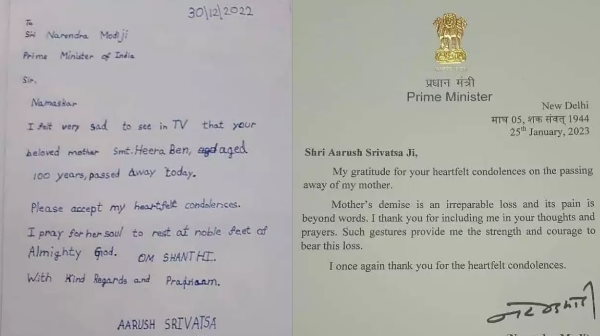 30/12/2022
To
Sri Narendra Modiji
Prime Minister of India
Sir.
Namaskar
I felt very sad to see in TV that your
beloved mother Smt. Heera Ben, aged
100 years, passed away today.
Please accept my heartfelt condolences.
I pray for her soul to rest at noble feet of
Almighty God. OM SHANTHI.
With Kind Regards and Pranaam.
AARUSH SRIVATSA
प्रधान मंत्री
Prime Minister
New Delhi
माघ 05, शक संवत् 1944
25th January, 2023
Shri Aarush Srivatsa Ji,
My gratitude for your heartfelt condolences on the passing
away of my mother.
Mother's demise is an irreparable loss and its pain is
beyond words. I thank you for including me in your thoughts and
prayers. Such gestures provide me the strength and courage to
bear this loss.
I once again thank you for the heartfelt condolences.